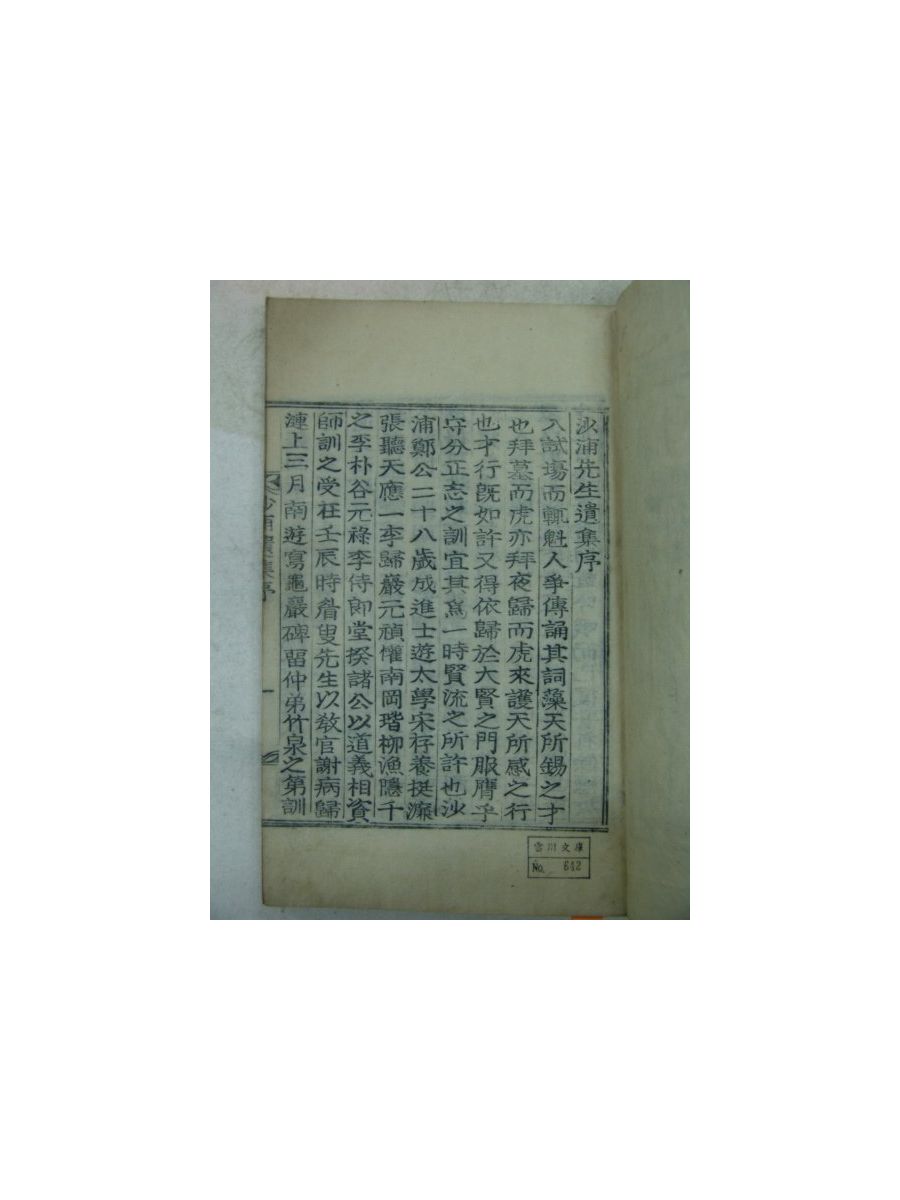 沙浦先生遺集序
入試場而輒魁人爭傳誦其詞藻天所錫之才
也拜墓而虎亦拜夜歸而虎來護天所感之行
也才行旣如許又得依歸於大賢之門服膺乎
守分正志之訓宜其爲一時賢流之所許也沙
浦鄭公二十八歲成進士遊太學宋存養挺濂
張聽天應一李歸巖元禎懼南岡瑎柳漁隱千
之李朴谷元祿李侍郞堂揆諸公以道義相資
師訓之受在壬辰時眉叟先生以敎官謝病歸
漣上三月南遊寫龜巖碑留仲弟竹泉之第訓
沙浦遺集序
一
雲川文庫
No. 642